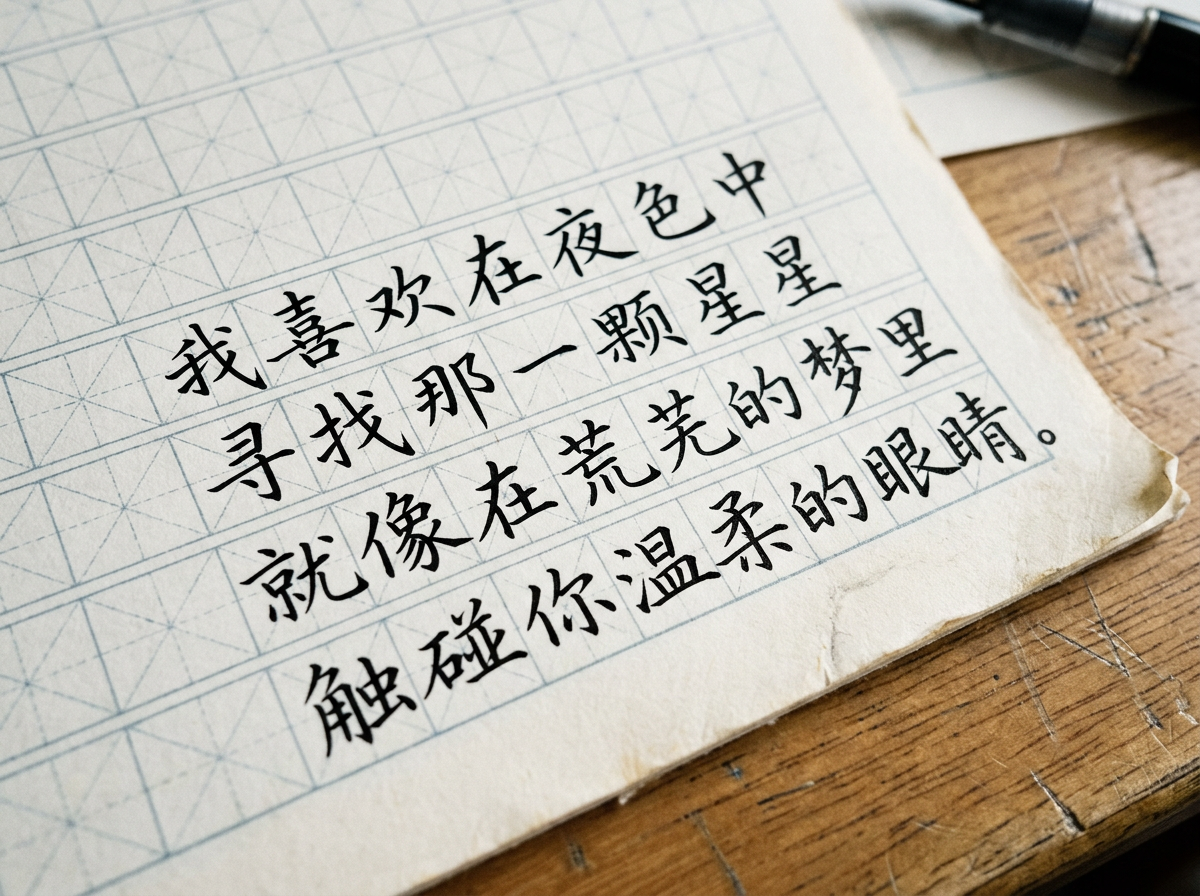 我喜欢在夜色中
寻找那一颗星星
就像在荒芜的梦里
触碰你温柔的眼睛。